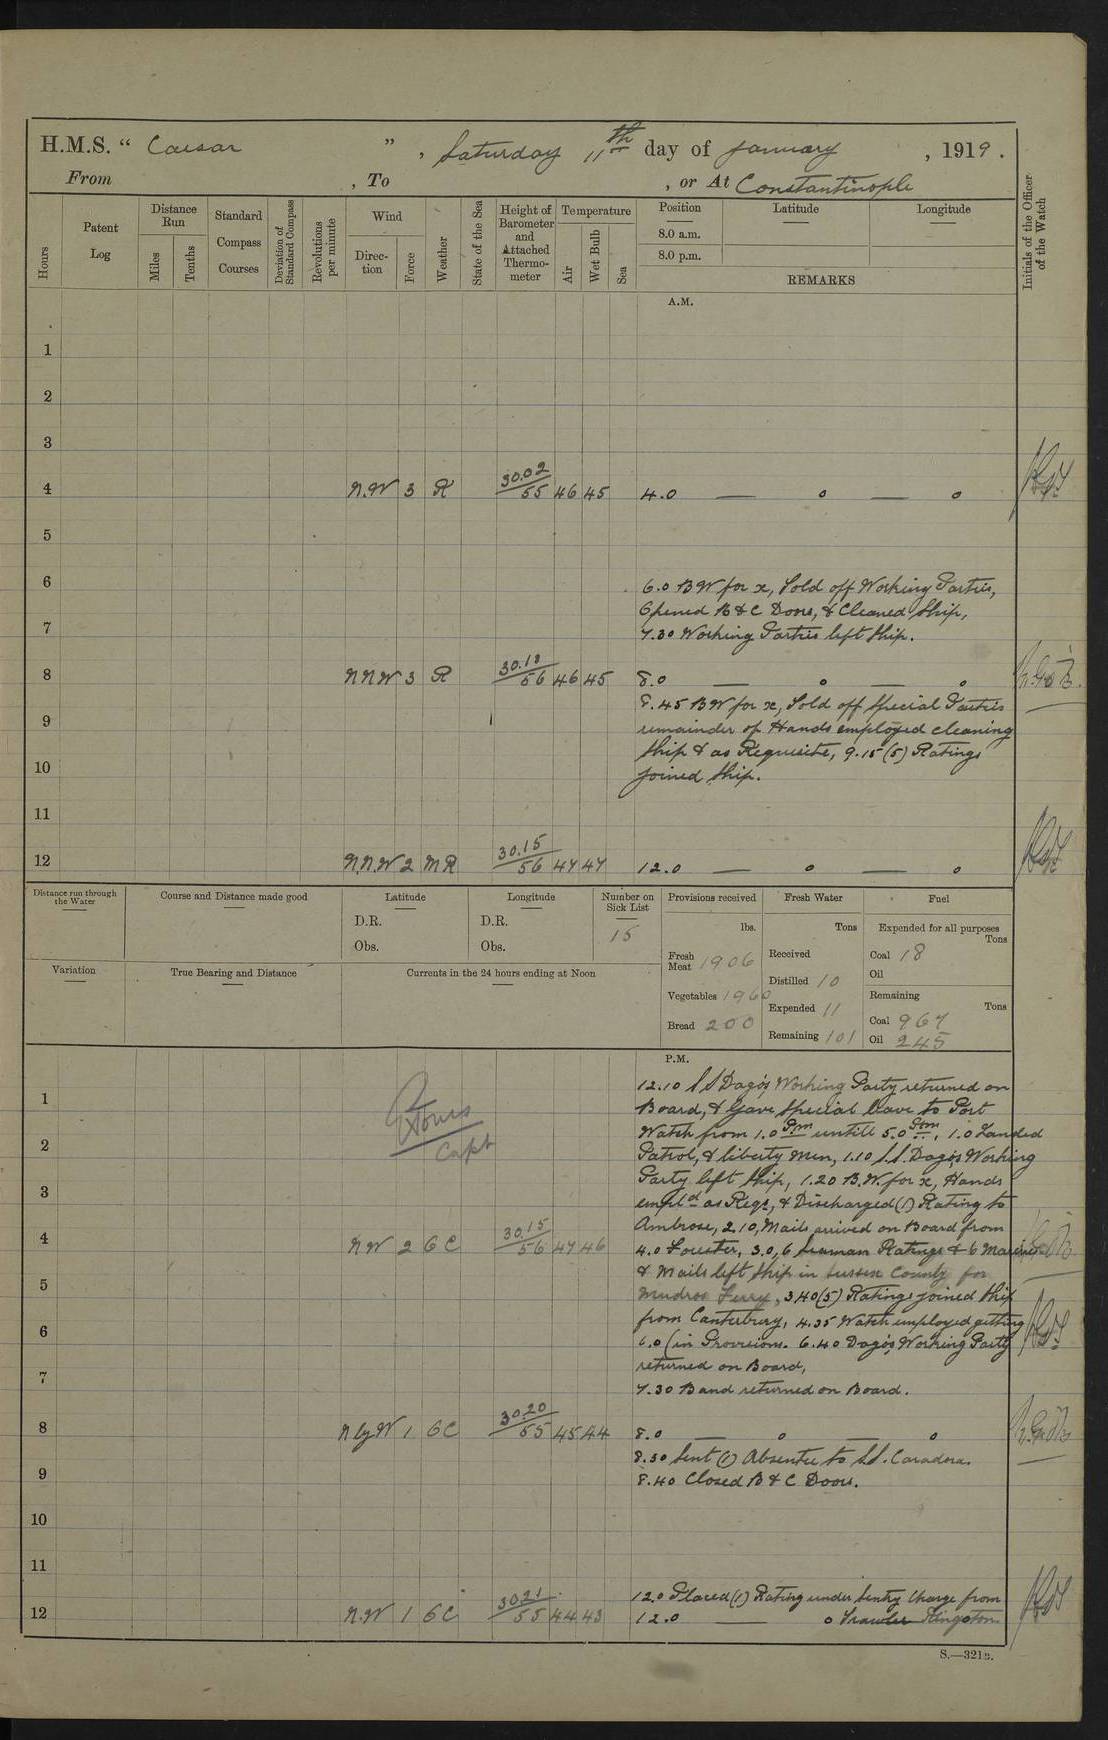 H.M.S. “ Caesar ”, Saturday 11th day of January, 1919.
From , To , or At Constantinople
Hours
Patent Log
Distance Run
Miles
Tenths
Standard Compass Courses
Deviation of Standard Compass
Revolutions per minute
Wind
Direc-tion
Force
Weather
State of the Sea
Height of Barometer and Attached Thermo-meter
Temperature
Air
Wet Bulb
Sea
Position
8.0 a.m.
8.0 p.m.
Latitude
Longitude
REMARKS
Initials of the Officer of the Watch
A.M.
1
2
3
4 N.W 3 R 30.02/55 46 45 4.0 — o — o
5
6
6.0 BW for x, Told off Working Parties,
Opened B & C Doors, & Cleaned Ship,
7
7.30 Working Parties left Ship.
8 NNW 3 R 30.12/56 46 45 8.0 — o — o
8.45 BW for x, Told off Special Parties
9
remainder of Hands employed cleaning
Ship & as Requisite, 9.15 (5) Ratings
10
joined Ship.
11
12 N.N.W 2 MR 30.15/56 47 47 12.0 — o — o
Distance run through the Water
Course and Distance made good
Latitude
D.R.
Obs.
Longitude
D.R.
Obs.
Number on Sick List
15
Provisions received
lbs.
Fresh Meat 1906
Vegetables 1960
Bread 200
Fresh Water
Tons
Received
Distilled 10
Expended 11
Remaining 101
Fuel
Expended for all purposes
Tons
Coal 18
Oil
Remaining
Tons
Coal 967
Oil 245
Variation
True Bearing and Distance
Currents in the 24 hours ending at Noon
P.M.
12.10 S S Dago's Working Party returned on
1
Board, & Gave Special leave to Port
Watch from 1.0 Pm untill 5.0 Pm, 1.0 Landed
2
Patrol, & liberty Men, 1.10 S.S. Dago's Working
Party left Ship, 1.20 B.W. for x, Hands
3
empld as Reqs, & Discharged (1) Rating to
Ambrose, 2.10, Mails arrived on Board from
Capt
4 NW 2 GC 30.15/56 47 46 4.0 Forester, 3.0, 6 Seaman Ratings & 6 Marines
& Mails left Ship in Sussex County for
5
Mudros Ferry, 3.40 (5) Ratings joined Ship
from Canterbury, 4.35 Watch employed getting
6
6.0 (in Provisions. 6.40 Dago's Working Party
returned on Board,
7
7.30 Band returned on Board.
8 N by W 1 GC 30.20/55 45 44 8.0 — o — o
8.30 Sent (1) Absentee to S.S. Caradora.
9
8.40 Closed B & C Doors.
10
11
12.0 Placed (1) Rating under Sentry Charge from
12 N.W 1 GC 30.21/55 44 43 12.0 — o Trawler Kingston
S.—321B.